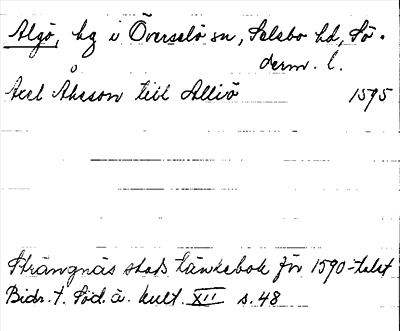 Algö, hg i Överselö sn, Selebo hd, Sö-
derm. l.
Axel Åkesson till Allöö 1595
Strängnäs stads tänkebok för 1590-talet
Bidr. t. Söd. ä. kult. XII s. 48